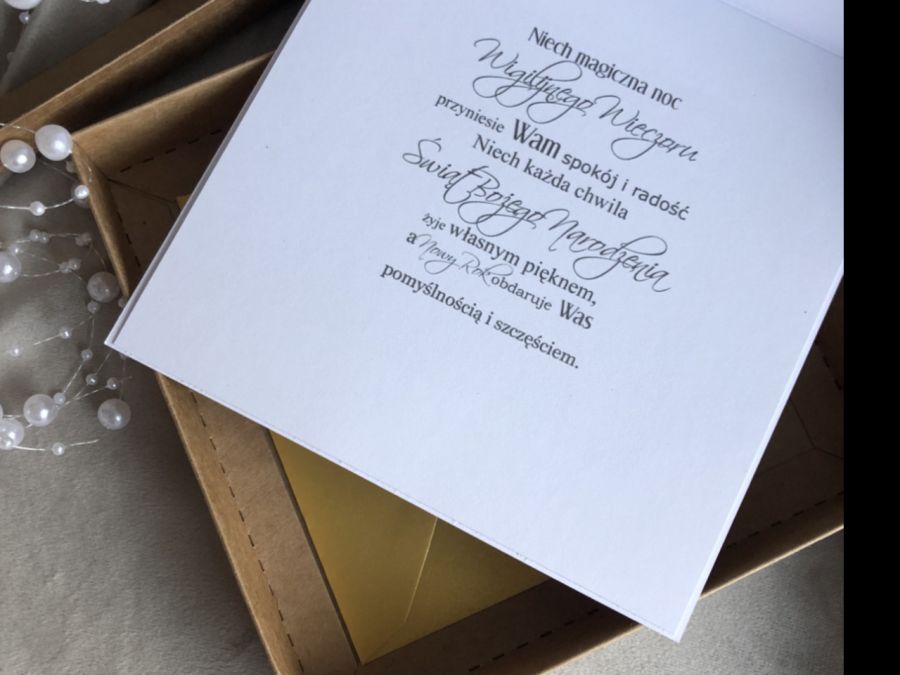 Niech magiczna noc
Wigilijnego Wieczoru
przyniesie Wam spokój i radość
Niech każda chwila
Świąt Bożego Narodzenia
żyje własnym pięknem,
a Nowy Rok obdaruje Was
pomyślnością i szczęściem.